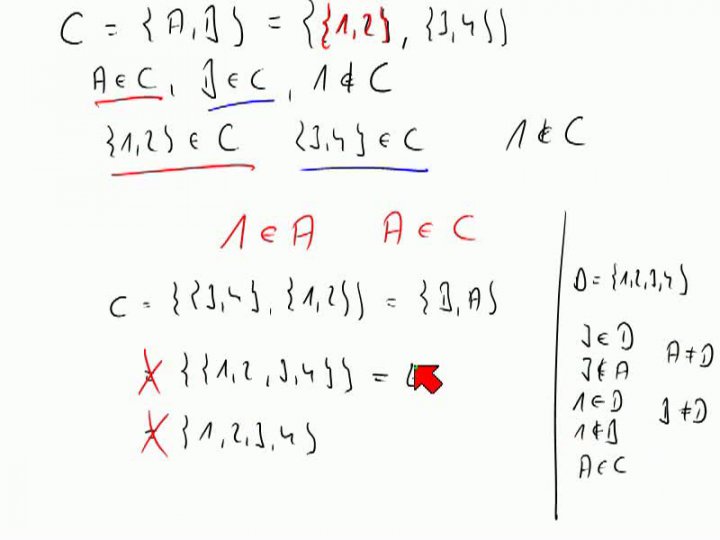 C = {A, B} = {{1,2}, {3,4}}
A ∈ C, B ∈ C, 1 ∉ C
{1,2} ∈ C {3,4} ∈ C 1 ∉ C
1 ∈ A A ∈ C
C = {{3,4}, {1,2}} = {B, A}
≠ {{1,2,3,4}} =
≠ {1,2,3,4}
D = {1,2,3,4}
3 ∈ D
A ≠ D
3 ∉ A
1 ∈ D
B ≠ D
1 ∉ B
A ∈ C